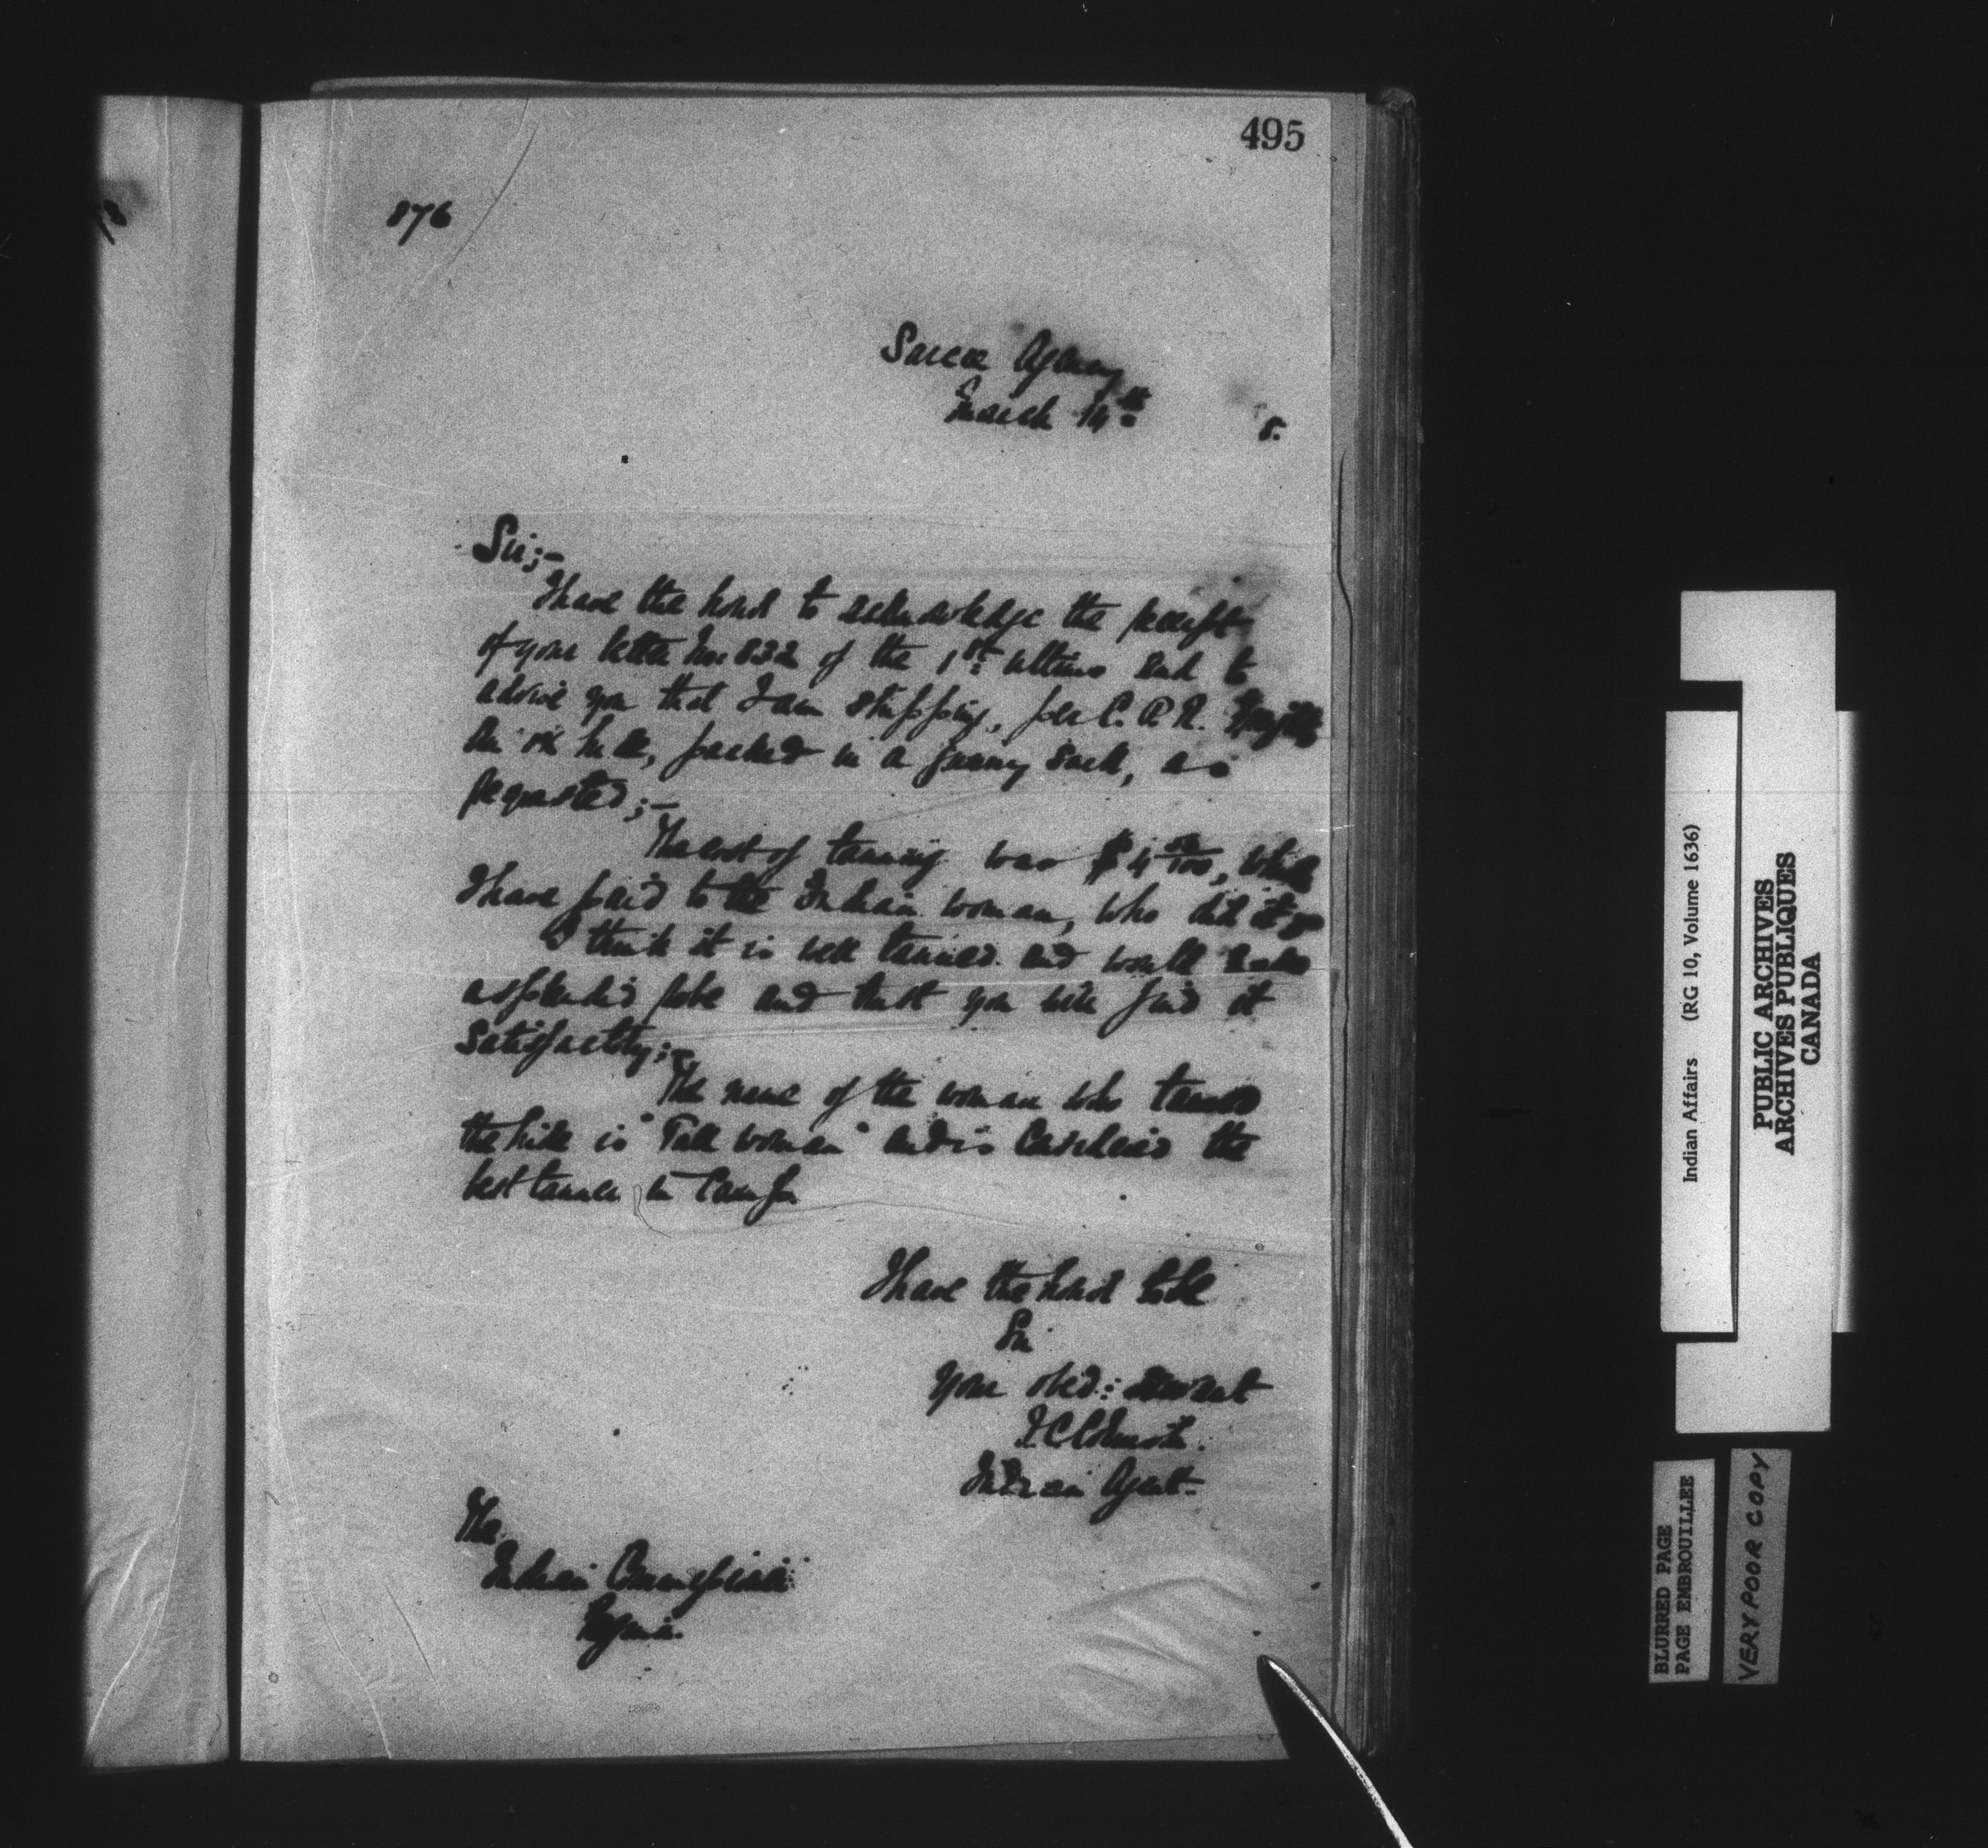 495
876
Sarcee Agency
March 14th 8.
Sir;-
I have the honor to acknowledge the receipt
of your letter No 832 of the 1st ultimo and to
advise you that I am shipping, per C.P.R. Freight
an ox hide, packed in a gunny sack, as
requested;-
The cost of tanning was $4 50/100, which
I have paid to the Indian woman, who did it
I think it is well tanned and would make
a splendid robe and trust you will find it
satisfactory;-
The name of the woman who tanned
the hide is "Tall woman" and is considered the
best tanner in Camp.
I have the honor to be
Sir
Your obed: servant
Indian Agent.
The
Indian Commissioner
Regina.
Indian Affairs (RG 10, Volume 1636)
PUBLIC ARCHIVES
ARCHIVES PUBLIQUES
CANADA
BLURRED PAGE
PAGE EMBROUILLEE
VERY POOR COPY